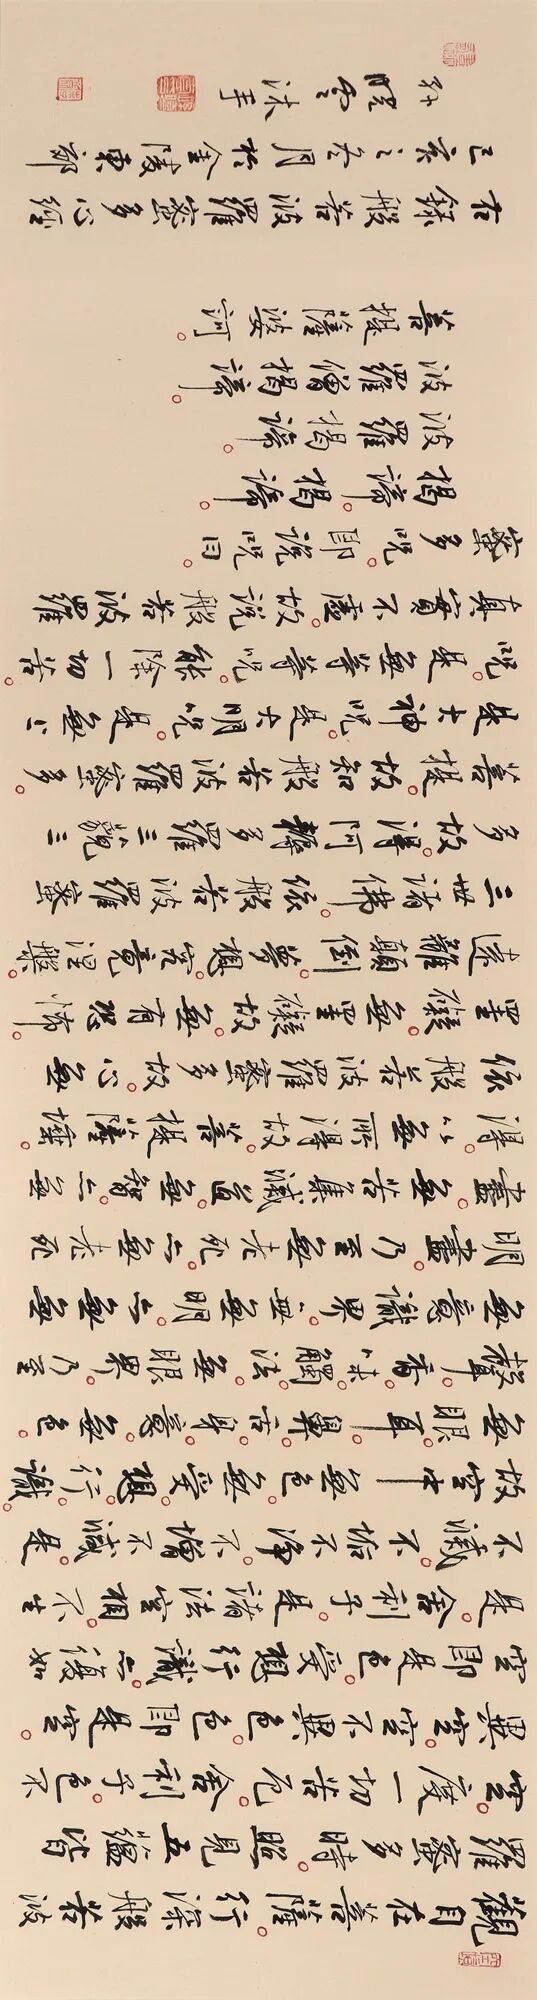 觀自在菩薩。行深般若波
羅蜜多時。照見五蘊皆
空。度一切苦厄。舍利子。色不
異空。空不異色。色即是空。
空即是色。受想行識。亦復如
是。舍利子。是諸法空相。不生
不滅。不垢不淨。不增不減。是
故空中無色。無受。想。行。識。
無眼。耳。鼻。舌。身。意。無色。
聲。香。味。觸。法。無眼界。乃至
無意識界。無無明。亦無無
明盡。乃至無老死。亦無老死
盡。無苦集滅道。無智亦無
得。以無所得故。菩提薩埵。
依般若波羅蜜多故。心無
罣礙。無罣礙故。無有恐怖。
遠離顛倒夢想。究竟涅槃。
三世諸佛。依般若波羅蜜
多故。得阿耨多羅三藐三
菩提。故知般若波羅蜜多。
是大神咒。是大明咒。是無上
咒。是無等等咒。能除一切苦。
真實不虛。故說般若波羅
蜜多咒。即說咒曰
揭諦。揭諦。
波羅揭諦。
波羅僧揭諦。
菩提薩婆訶。
右錄般若波羅蜜多心經
己亥之冬月於金陵東郊
孫曉雲沐手